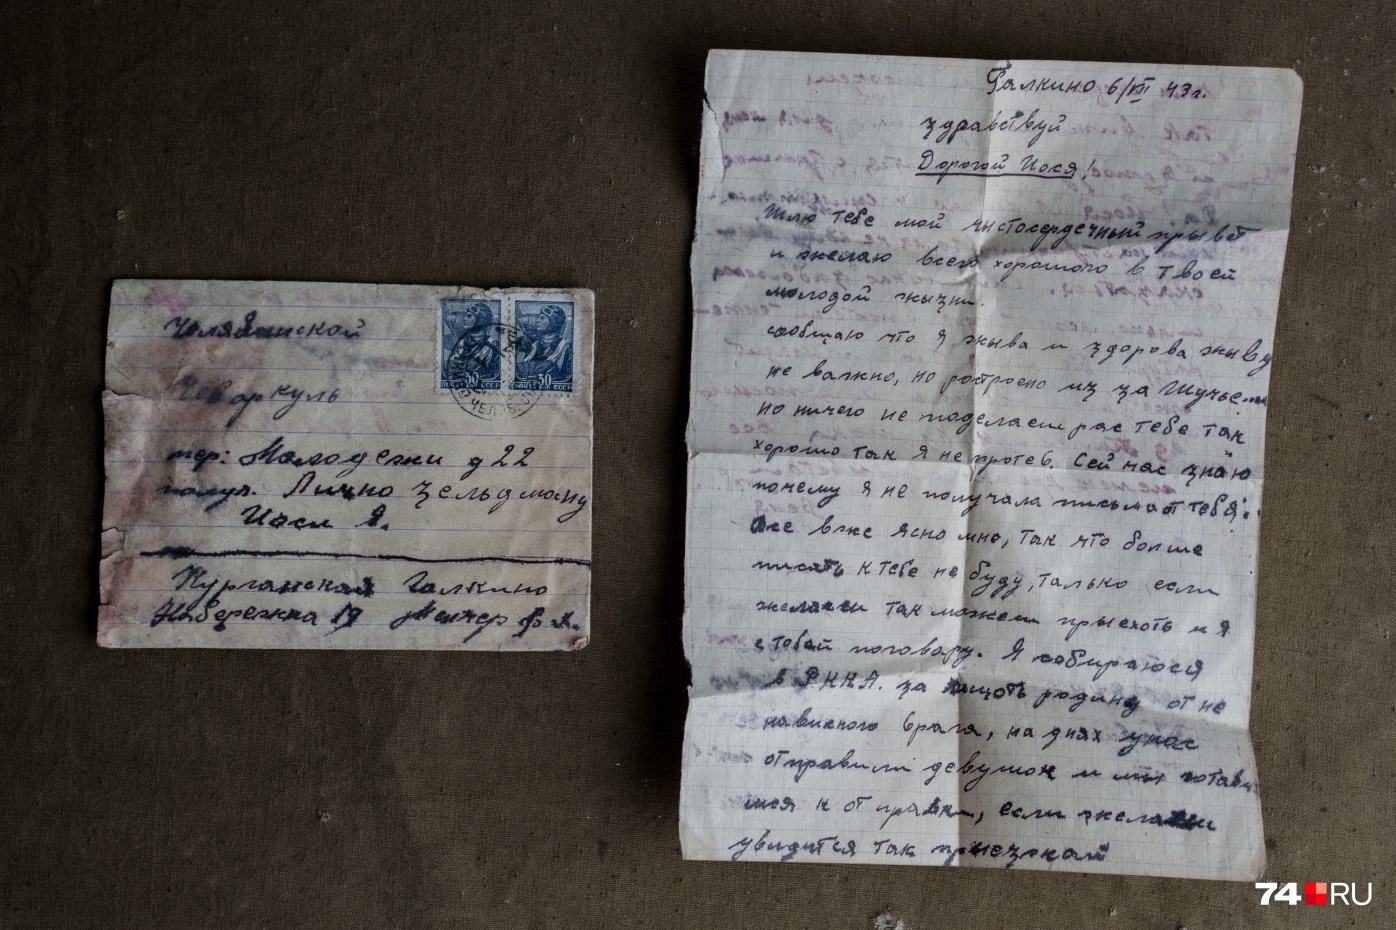 Челябинской
Чебаркуль
пер: Молодежи д 22
получ. Лично Зельдману
Иоси Я.
Курганская Галкино
Набережна 19
30 30
ПОЧТА СССР ПОЧТА СССР
Галкино 6/VIII 43 г.
Здравствуй
Дорогой Иося!
Шлю тебе мой чыстосердечный прывет
и желаю всего хорошого в твоей
молодой жызни.
сообщаю что я жыва и здорова жыву
не важно, но ростроено из за
но ничего не поделаеш рас тебе так
хорошо так я не протев. Сей час знаю
почему я не получала письма от тебя.
все вже ясно мне, так что больше
писать к тебе не буду, только если
желаеш так можеш прыехоть и я
с тобой поговару. Я собираюся
в РККА. за щищоть родину от не
нависного врага, на днях у нас
отправили девушок и мы готави
мся к от правки, если желаеш
увидится так прыезжай
74 RU